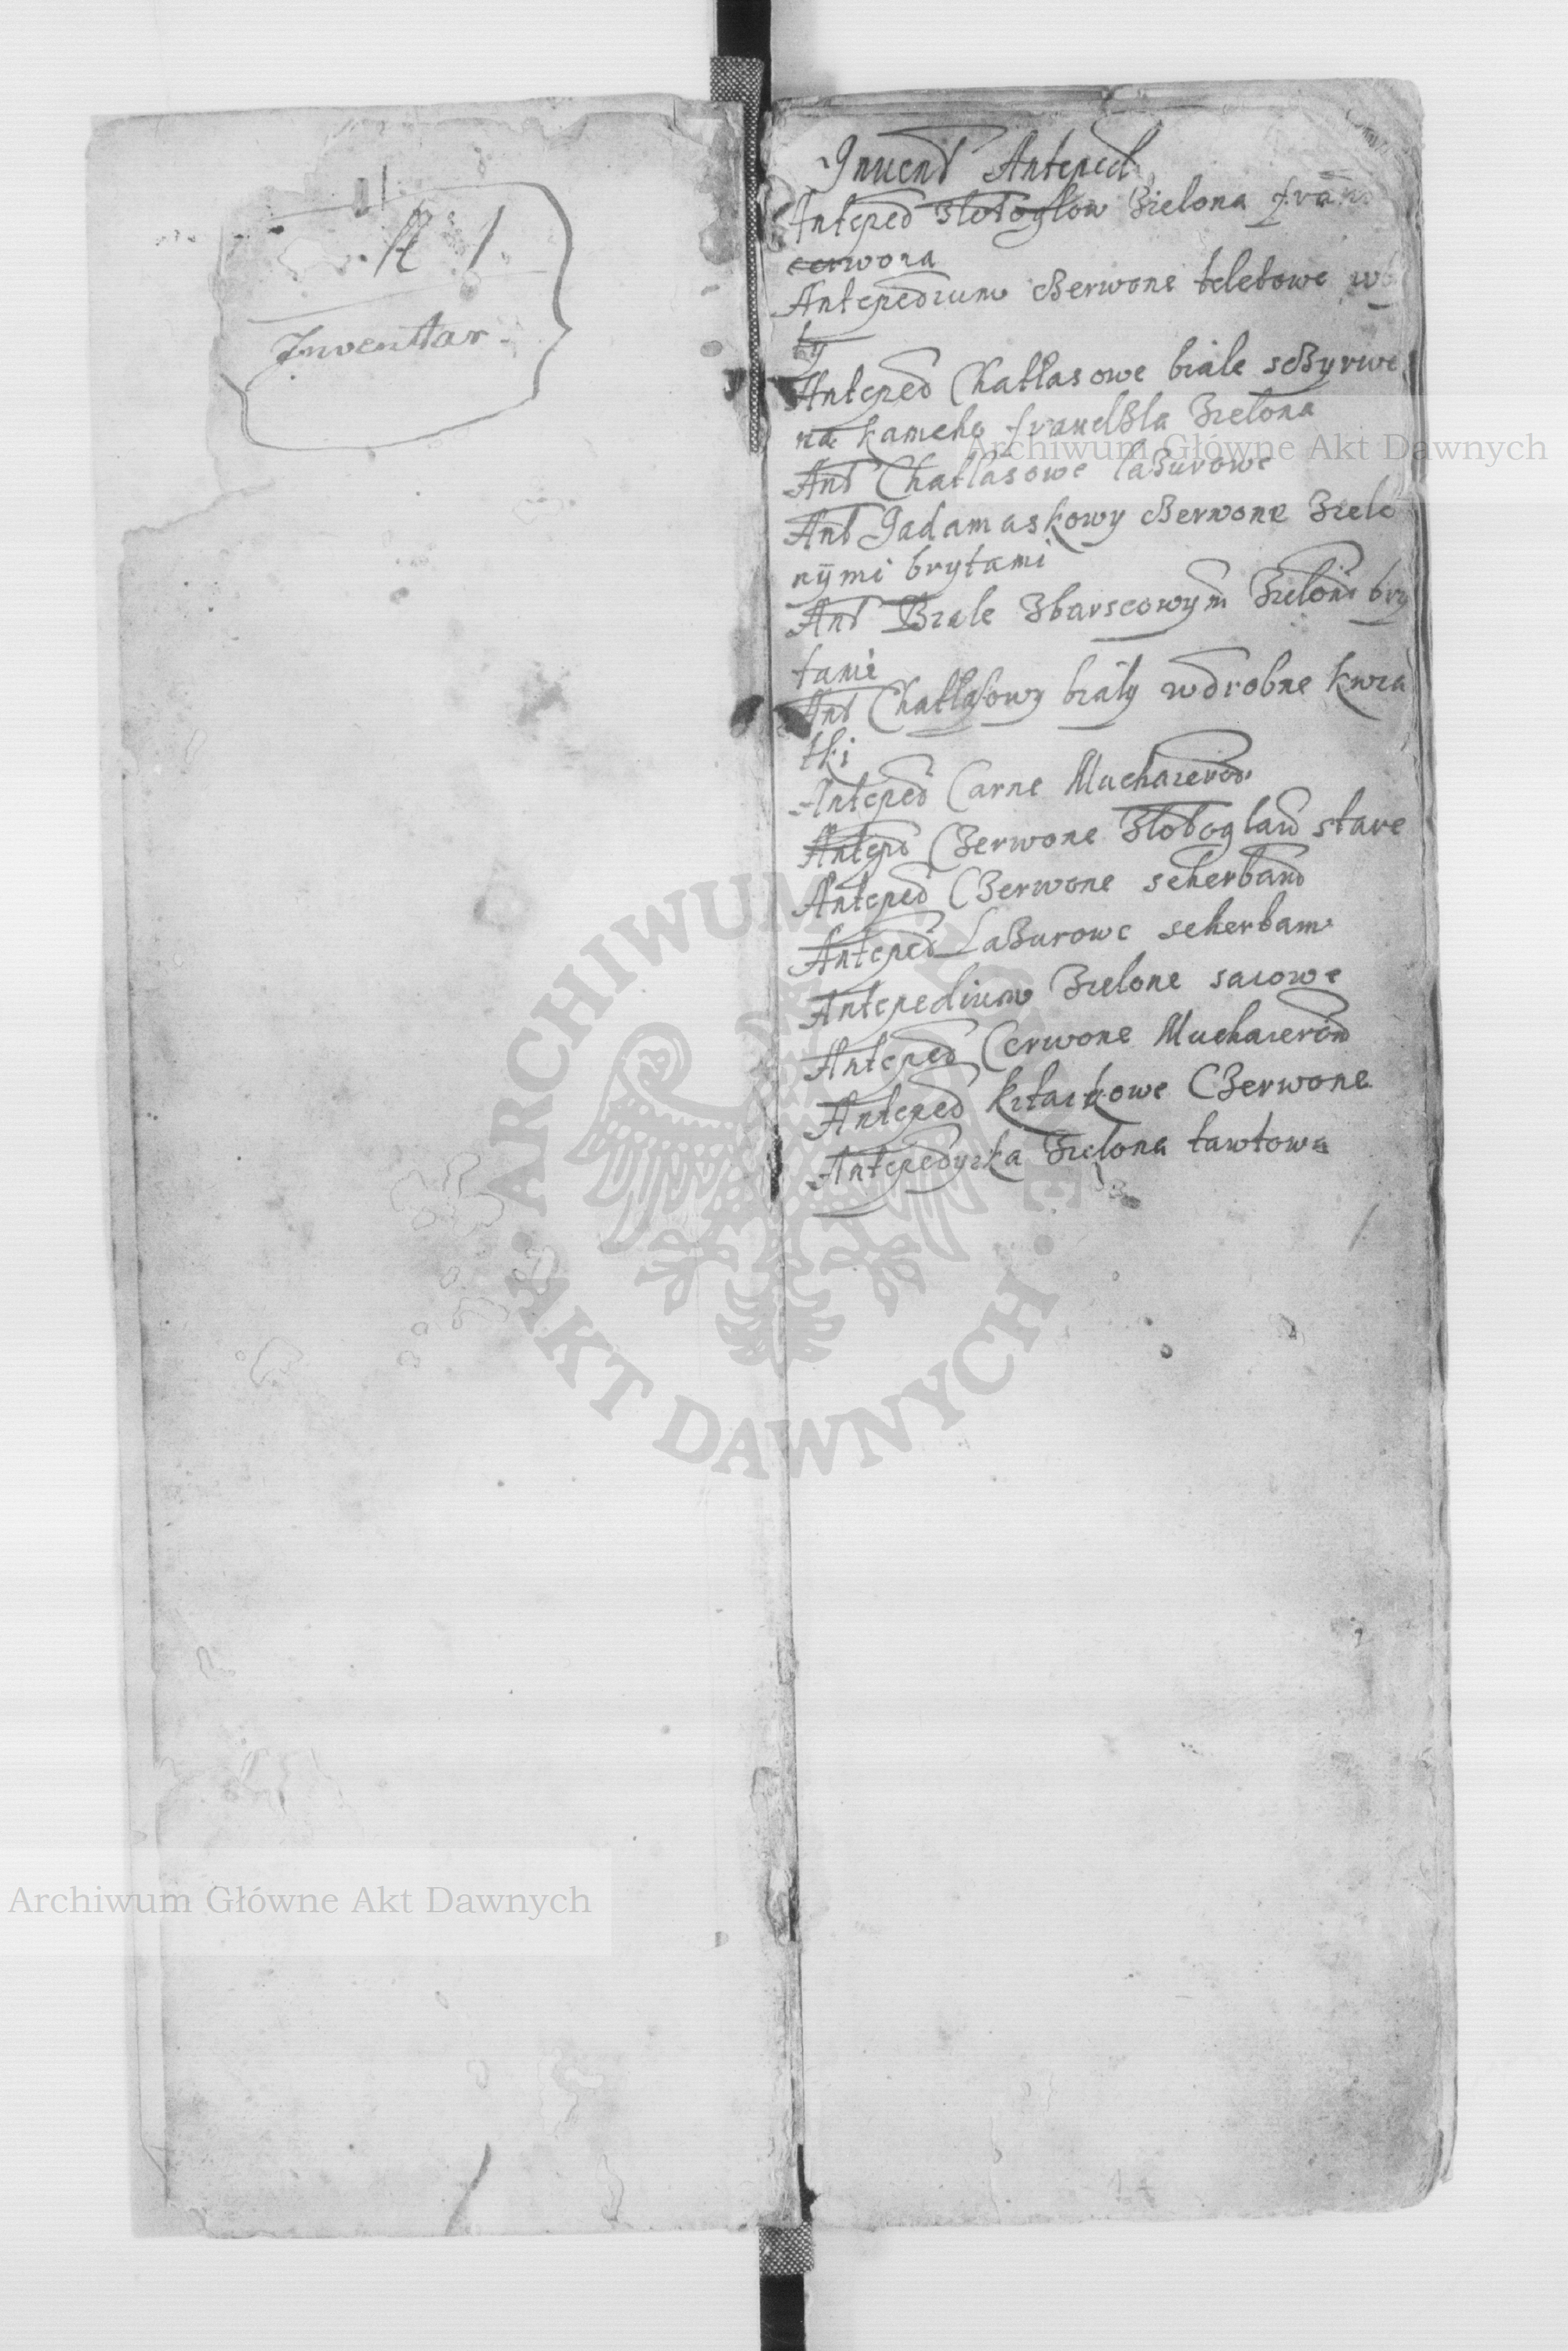 A 1
Inventar
Inuent Anteped
Anteped Złotogłow Zielona
cerwona
Antepedium Czerwone teletowe
ty
Anteped Chatłasowe biale
na frandzla Zielona
Ant Chatlasowe laZurowe
Ant Jadamaskowy Czerwone Zielo
nÿmi brytami
Ant Biale Zielon bry
tami
Ant Chatłasowy biały wdrobne kwia
tki
Anteped Carne Muchaierow
Anteped CZerwone Złotoglaw stare
Anteped CZerwone
Anteped LaZurowe
Antepedium Zielone saiowe
Anteped Cerwone Muchaierow
Anteped kitaikowe CZerwone
Zielona tawtowa
ARCHIWUM AKT DAWNYCH
Archiwum Główne Akt Dawnych
Archiwum Główne Akt Dawnych